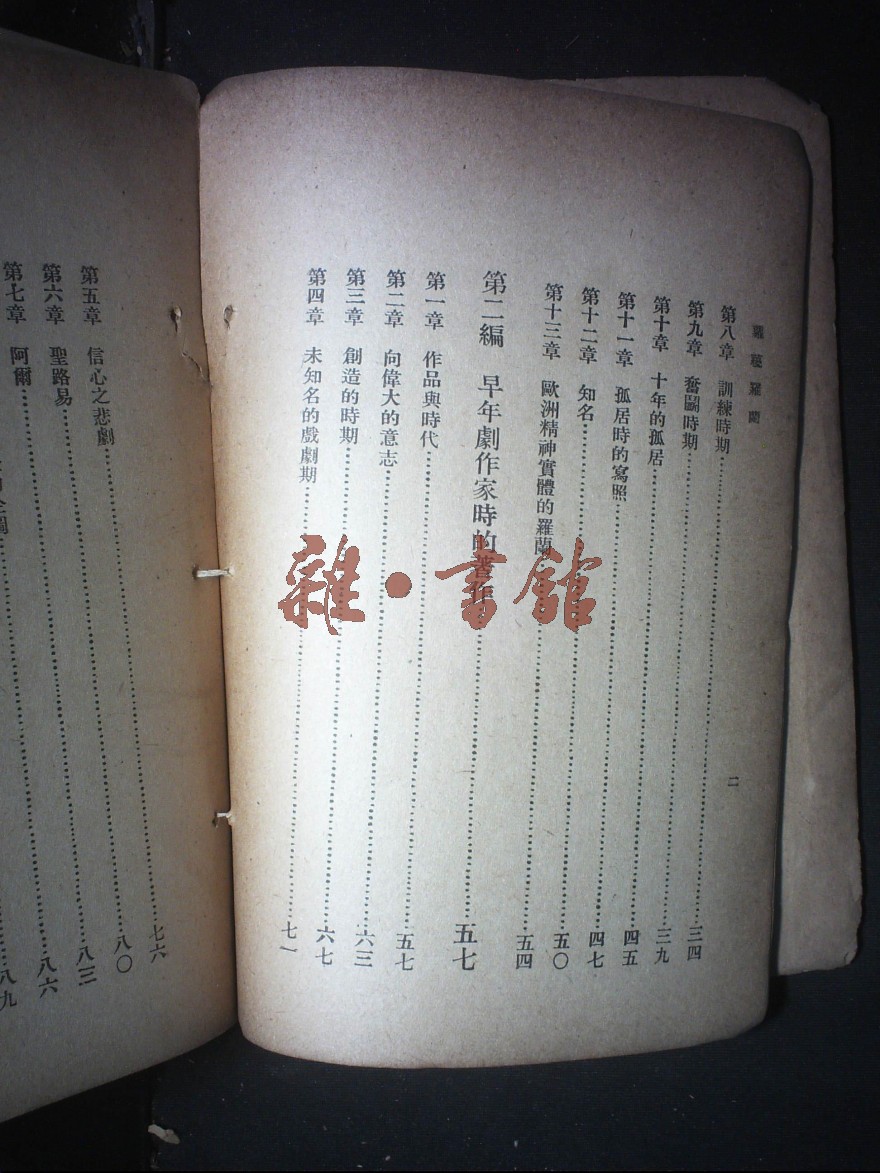 羅曼羅蘭
二
第八章 訓練時期……三四
第九章 奮鬭時期……三九
第十章 十年的孤居……四五
第十一章 孤居時的寫照……四七
第十二章 知名……五〇
第十三章 歐洲精神實體的羅蘭……五四
第二編 早年劇作家時的著作……五七
第一章 作品與時代……五七
第二章 向偉大的意志……六三
第三章 創造的時期……六七
第四章 未知名的戲劇期……七一
第五章 信心之悲劇……七六
第六章 聖路易……八〇
第七章 阿爾……八三
八六
八九
雜·書館